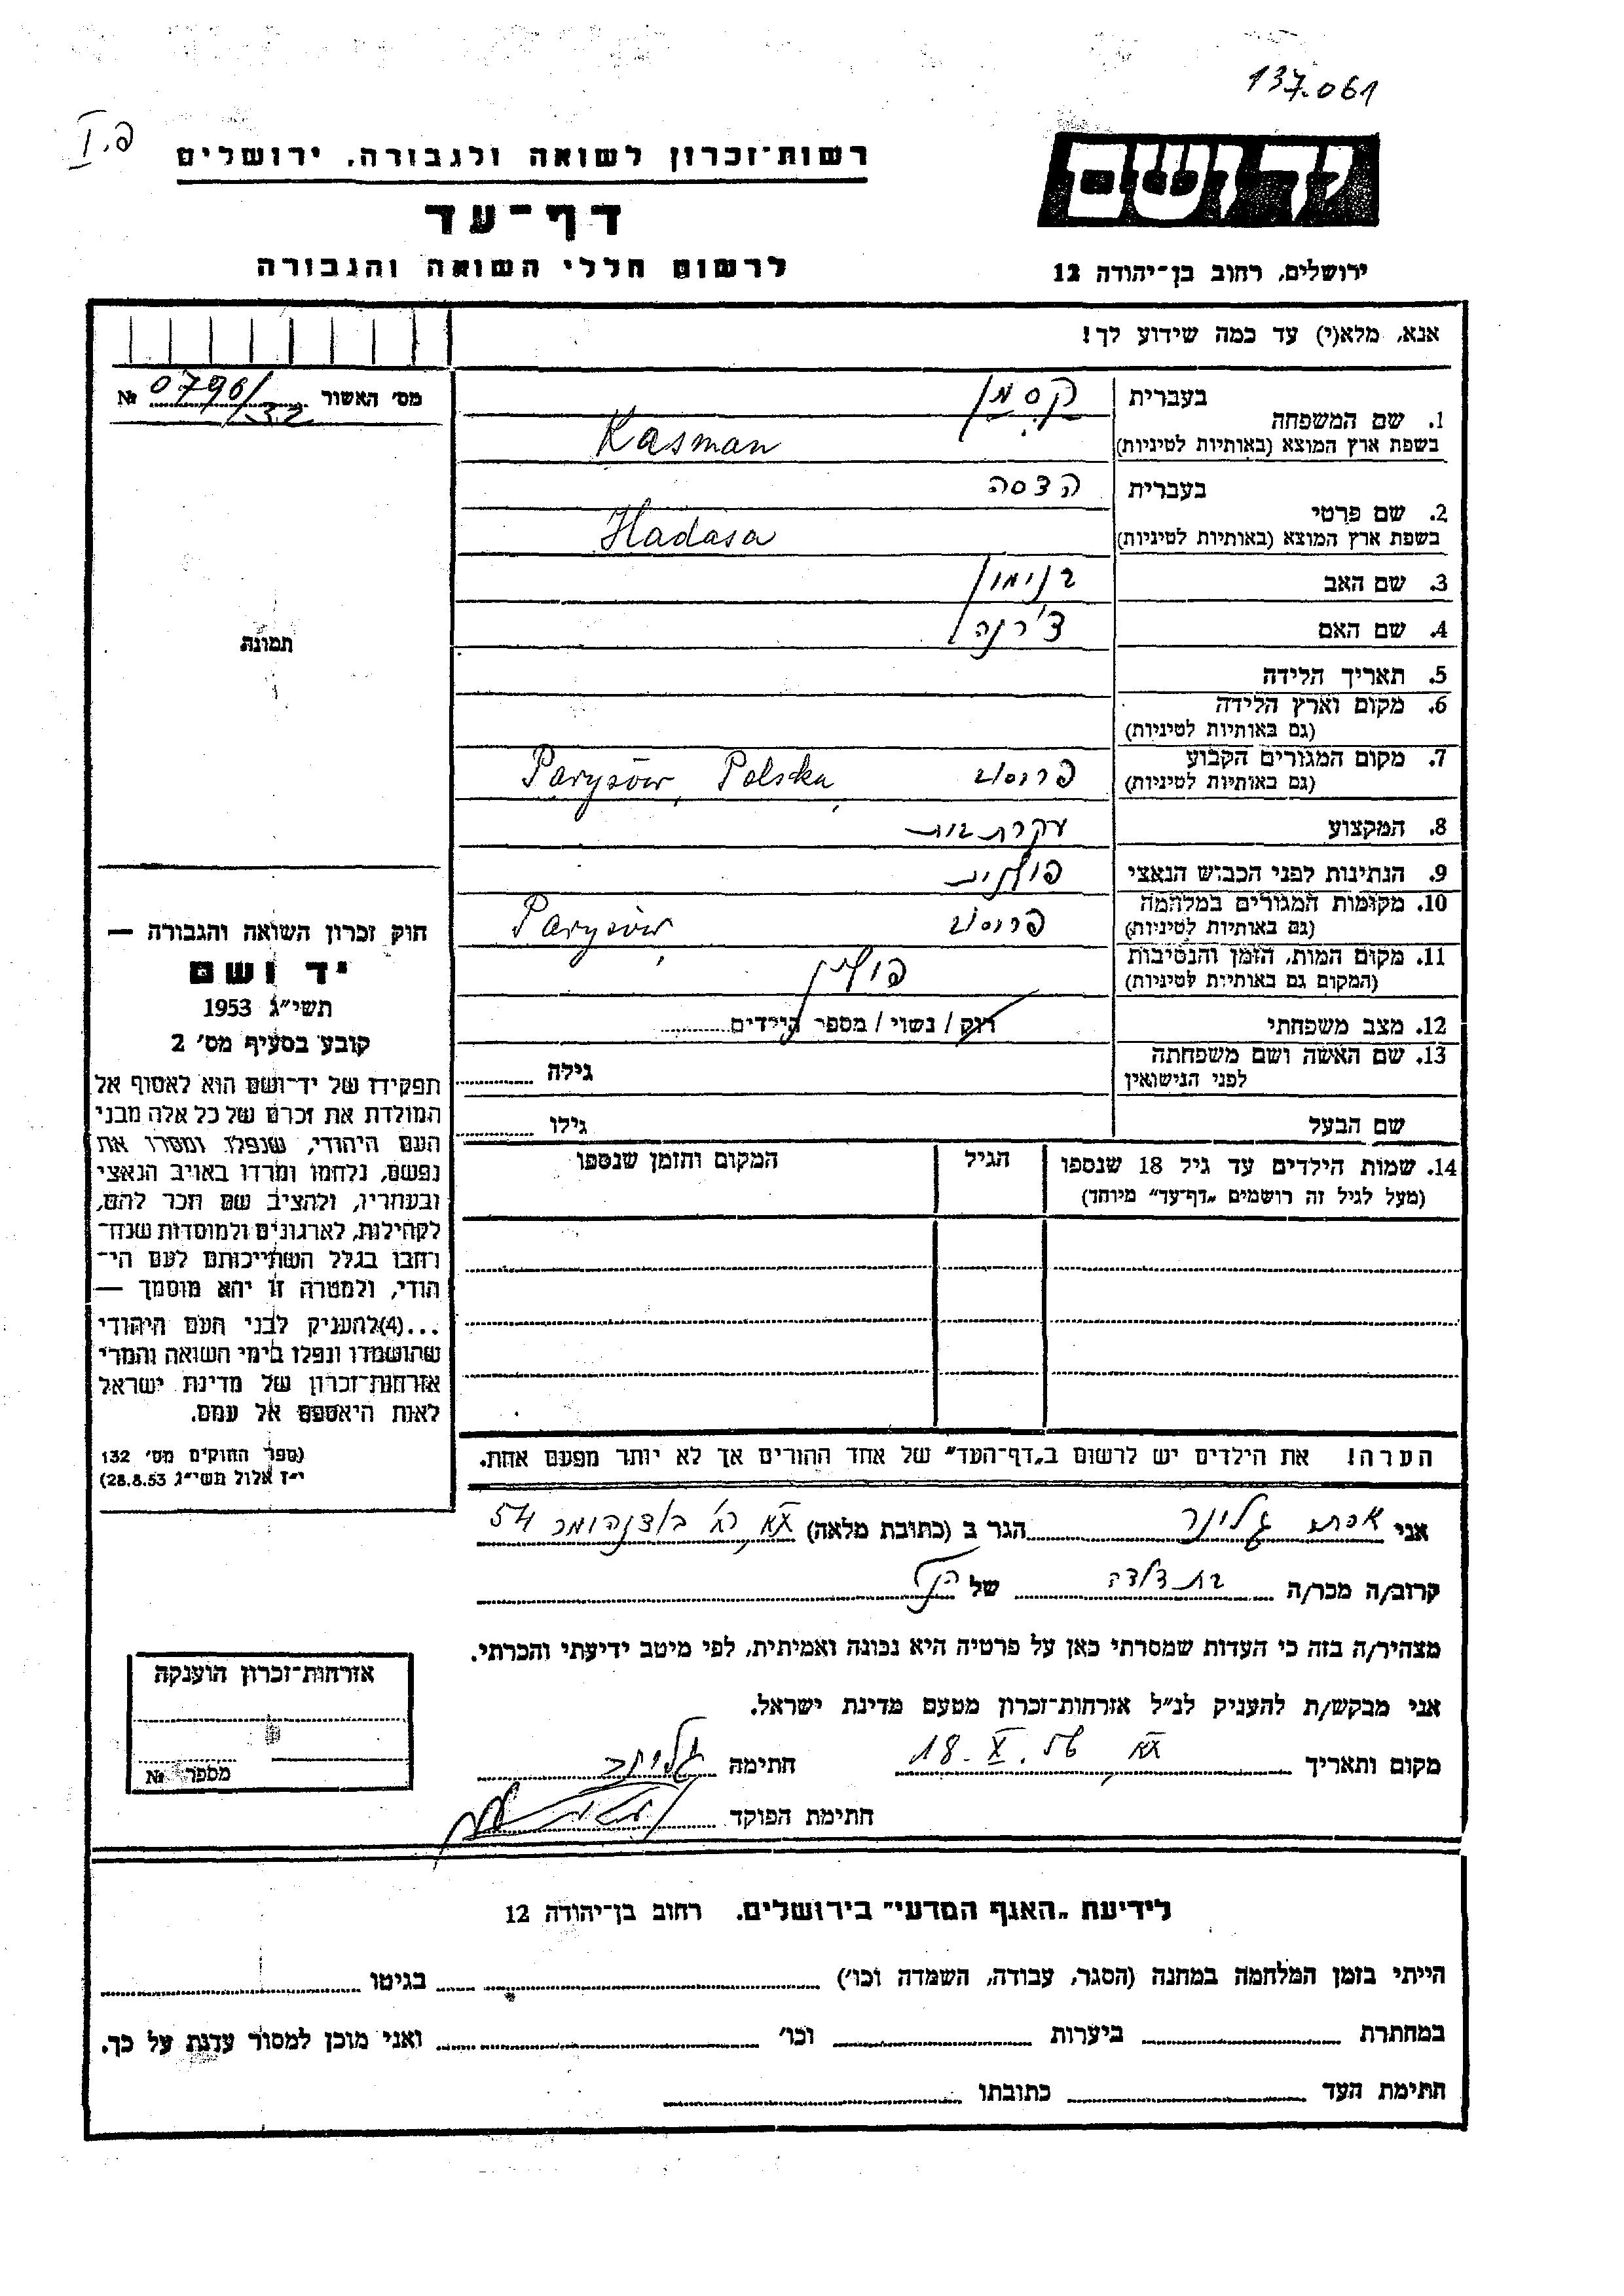 137.061
פ. I
יד ושם
רשות־זכרון לשואה ולגבורה, ירושלים
דף־עד
לרשום חללי השואה והגבורה
ירושלים, רחוב בן־יהודה 12
אנא, מלא(י) עד כמה שידוע לך!
מס׳ האשור № 0796/32
1. שם המשפחה
בעברית קסמן
בשפת ארץ המוצא (באותיות לטיניות) Kasman
2. שם פרטי
בעברית הדסה
בשפת ארץ המוצא (באותיות לטיניות) Hadasa
3. שם האב בנימין
4. שם האם
5. תאריך הלידה
6. מקום וארץ הלידה
(גם באותיות לטיניות)
7. מקום המגורים הקבוע
(גם באותיות לטיניות) פריסוב Parysów, Polska
8. המקצוע עקרת בית
9. הנתינות לפני הכבוש הנאצי פולנית
10. מקומות המגורים במלחמה
(גם באותיות לטיניות) פריסוב Parysów,
11. מקום המות, הזמן והנסיבות
(המקום גם באותיות לטיניות) פולין
12. מצב משפחתי רווק / נשוי / מספר הילדים
13. שם האשה ושם משפחתה
לפני הנישואין גילה
שם הבעל גילו
14. שמות הילדים עד גיל 18 שנספו הגיל המקום והזמן שנספו
(מעל לגיל זה רושמים „דף־עד” מיוחד)
הערה! את הילדים יש לרשום ב„דף־העד” של אחד ההורים אך לא יותר מפעם אחת.
תמונה
חוק זכרון השואה והגבורה —
יד ושם
תשי״ג 1953
קובע בסעיף מס׳ 2
תפקידו של יד־ושם הוא לאסוף אל
המולדת את זכרם של כל אלה מבני
העם היהודי, שנפלו ומסרו את
נפשם, נלחמו ומרדו באויב הנאצי
ובעוזריו, ולהציב שם וזכר להם,
לקהילות, לארגונים ולמוסדות שנח־
רבו בגלל השתייכותם לעם הי־
הודי, ולמטרה זו יהא מוסמך —
...(4) להעניק לבני העם היהודי
שהושמדו ונפלו בימי השואה והמרי
אזרחות־זכרון של מדינת ישראל
לאות היאספם אל עמם.
(ספר החוקים מס׳ 132
י״ז אלול תשי״ג 28.8.53)
אני הגר ב (כתובת מלאה) 54
קרוב/ה מכר/ה בת דודה של הנ״ל
מצהיר/ה בזה כי העדות שמסרתי כאן על פרטיה היא נכונה ואמיתית, לפי מיטב ידיעתי והכרתי.
אני מבקש/ת להעניק לנ״ל אזרחות־זכרון מטעם מדינת ישראל.
מקום ותאריך ת״א, 18.X.56 חתימה
חתימת הפוקד
אזרחות־זכרון הוענקה
מספר №
לידיעת „האגף המדעי” בירושלים, רחוב בן־יהודה 12
הייתי בזמן המלחמה במחנה (הסגר, עבודה, השמדה וכו׳) בגיטו
במחתרת ביערות וכו׳ ואני מוכן למסור עדות על כך.
חתימת העד כתובתו